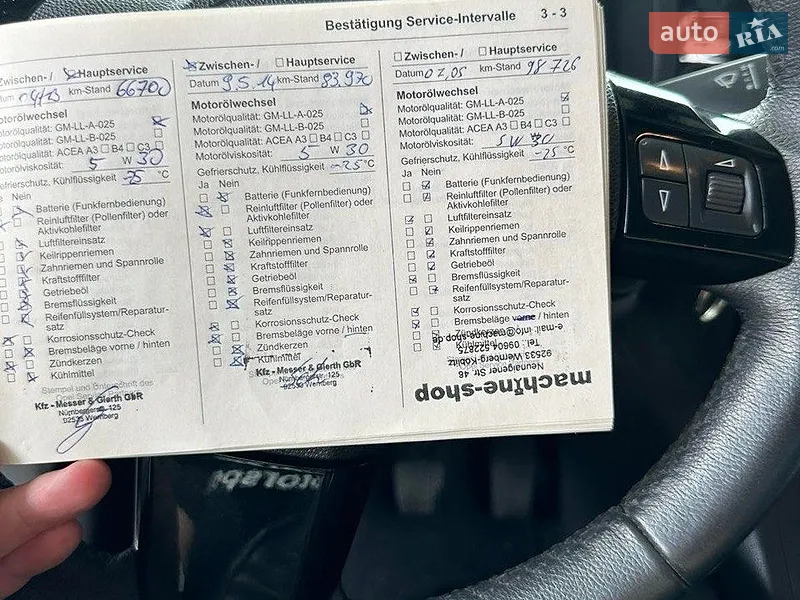 Bestätigung Service-Intervalle 3 - 3
auto RIA .com
Zwischen- / Hauptservice
04/13 km-Stand 66700
Motorölwechsel
Motorölqualität: GM-LL-A-025
Motorölqualität: GM-LL-B-025
Motorölqualität: ACEA A3 B4 C3
Motorölviskosität: 5 W 30
Gefrierschutz, Kühlflüssigkeit -25 °C
Ja Nein
Batterie (Funkfernbedienung)
Reinluftfilter (Pollenfilter) oder
Aktivkohlefilter
Luftfiltereinsatz
Keilrippenriemen
Zahnriemen und Spannrolle
Kraftstofffilter
Getriebeöl
Bremsflüssigkeit
Reifenfüllsystem/Reparatur-
satz
Korrosionsschutz-Check
Bremsbeläge vorne / hinten
Zündkerzen
Kühlmittel
Stempel und Unterschrift des
Opel
Kfz - Messer & Gierth GbR
Nürnbergerstr. 125
92533 Wernberg
Zwischen- / Hauptservice
Datum 9.5.14 km-Stand 83.970
Motorölwechsel
Motorölqualität: GM-LL-A-025
Motorölqualität: GM-LL-B-025
Motorölqualität: ACEA A3 B4 C3
Motorölviskosität: 5 W 30
Gefrierschutz, Kühlflüssigkeit -25 °C
Ja Nein
Batterie (Funkfernbedienung)
Reinluftfilter (Pollenfilter) oder
Aktivkohlefilter
Luftfiltereinsatz
Keilrippenriemen
Zahnriemen und Spannrolle
Kraftstofffilter
Getriebeöl
Bremsflüssigkeit
Reifenfüllsystem/Reparatur-
satz
Korrosionsschutz-Check
Bremsbeläge vorne / hinten
Zündkerzen
Kühlmittel
Kfz - Messer & Gierth GbR
Nürnbergerstr. 125
92533 Wernberg
Zwischen- / Hauptservice
Datum 07.05 km-Stand 98 726
Motorölwechsel
Motorölqualität: GM-LL-A-025
Motorölqualität: GM-LL-B-025
Motorölqualität: ACEA A3 B4 C3
Motorölviskosität: 5 W 30
Gefrierschutz, Kühlflüssigkeit -25 °C
Ja Nein
Batterie (Funkfernbedienung)
Reinluftfilter (Pollenfilter) oder
Aktivkohlefilter
Luftfiltereinsatz
Keilrippenriemen
Zahnriemen und Spannrolle
Kraftstofffilter
Getriebeöl
Bremsflüssigkeit
Reifenfüllsystem/Reparatur-
satz
Korrosionsschutz-Check
Bremsbeläge vorne / hinten
Zündkerzen
Kühlmittel
machine-shop
Str. 46
92533 Wernberg-Köblitz
Tel. 09604 522875
e-mail: info@machine-shop.de